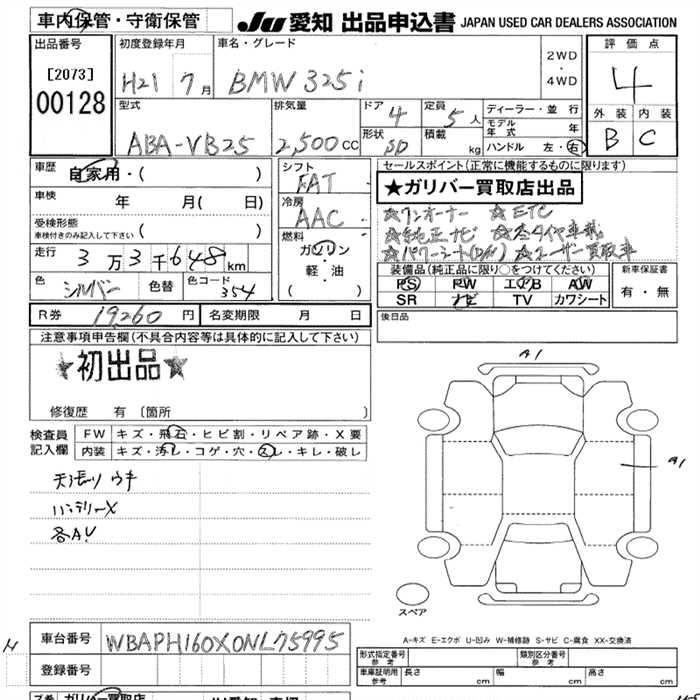 車内保管・守衛保管 JU 愛知 出品申込書 JAPAN USED CAR DEALERS ASSOCIATION
出品番号 初度登録年月 車名・グレード 評価点
[2073] H21 7月 BMW 325i 2WD・4WD 4
00128
型式 排気量 ドア 4 定員 5人 ディーラー・並行 外装 内装
ABA-VB25 2,500cc 形状 SD 積載 kg モデル年式 年 B C
ハンドル 左・右
車歴 自家用・( ) シフト FAT セールスポイント(正常に機能するものに限ります)
車検 年 月( 日) 冷房 AAC ★ガリバー買取店出品
受検形態 ( ) ☆ワンオーナー ☆ETC
車検付きのみ記入して下さい 燃料 ☆純正ナビ
走行 3万3千648km ガソリン ☆パワーシート(D/N) ☆ユーザー買取車
色 シルバー 色替 色コード 354 軽・油 ( )
装備品(純正品に限り○をつけてください) 新車保証書
PS PW エアB AW 有・無
SR ナビ TV カワシート
R券 19,260円 名変期限 月 日 後日品
注意事項申告欄(不具合内容等は具体的に記入して下さい)
★初出品★
修復歴 有 [箇所 ]
検査員記入欄 FW キズ・飛石・ヒビ割・リペア跡・X要
内装 キズ・汚レ・コゲ・穴・スレ・キレ・破レ
A1
A1
天張り ウキ
バッテリーX
各AU
スペア
A-キズ E-エクボ U-凹み W-補修跡 S-サビ C-腐食 XX-交換済
車台番号 WBAPH160X0NL75995
登録番号
形式指定番号 参考 類別区分番号 参考
車庫証明用 参考 長さ cm 幅 cm 高さ cm
ガリバー買取店